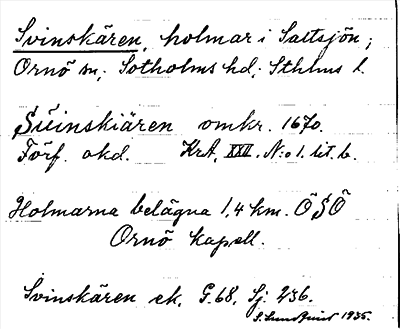 Svinskären, holmar i Saltsjön;
Ornö sn; Sotholms hd; Sthlms l.
Süinskiären omkr. 1670.
Förf. okd. KrA, XXII. N:o 1. lit. b.
Holmarna belägna 1,4 km. ÖSÖ
Ornö kapell.
Svinskären ek. G.68, Sj. 236.
S. Lundquist 1935.